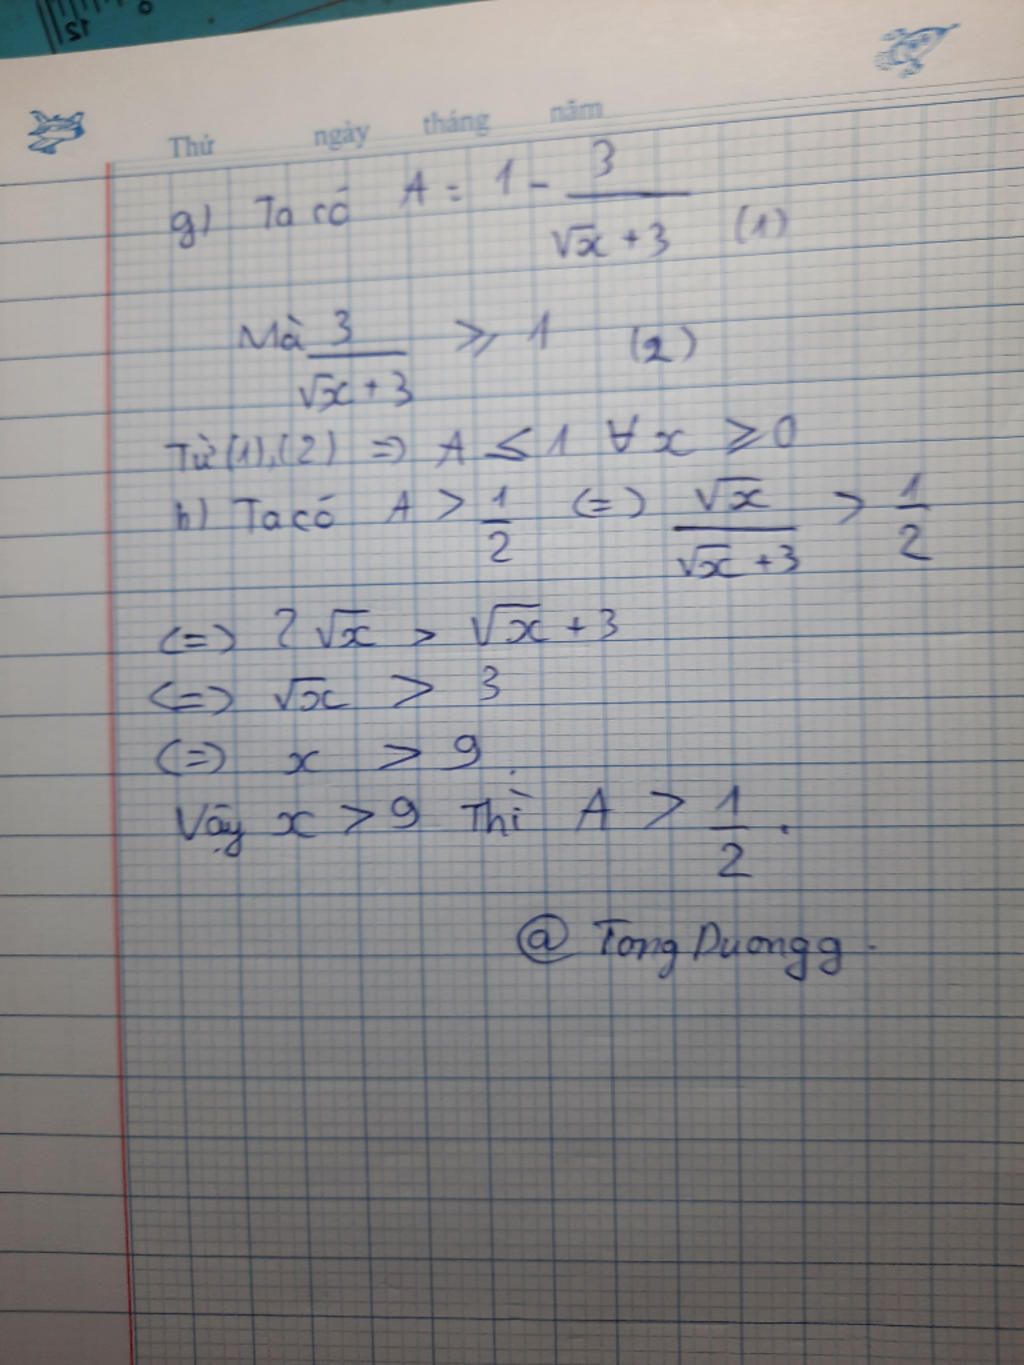 15 0
Thứ ngày tháng năm
g) Ta có A = 1 - 3/(√x + 3) (1)
Mà 3/(√x + 3) ⩾ 1 (2)
Từ (1), (2) => A ≤ 1 ∀ x ⩾ 0
h) Ta có A > 1/2 (=) √x/(√x + 3) > 1/2
(=) 2√x > √x + 3
(=) √x > 3
(=) x > 9.
Vậy x > 9 Thì A > 1/2.
@ Tong Duongg.